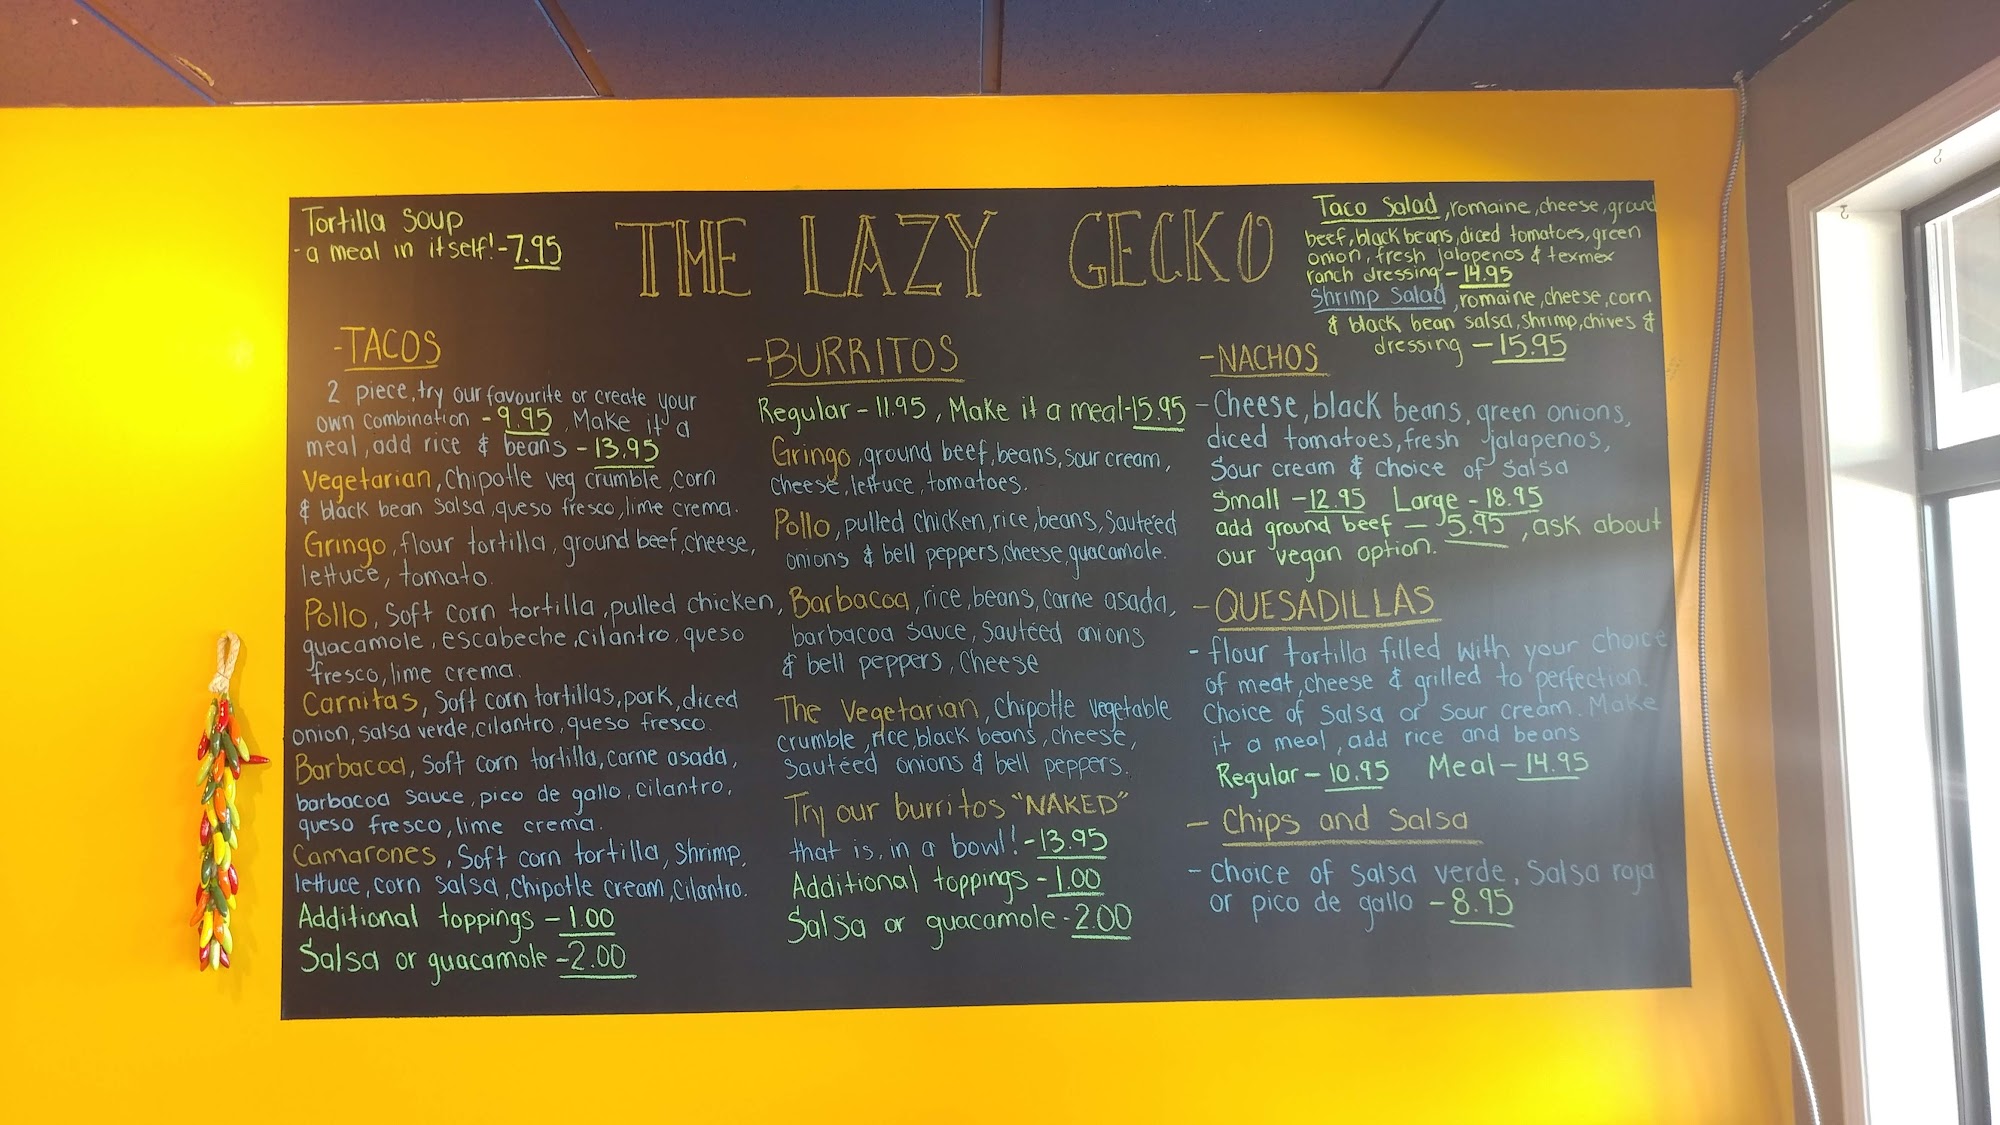 Tortilla Soup
- a meal in itself! - 7.95
THE LAZY GECKO
Taco Salad, romaine, cheese, ground
beef, black beans, diced tomatoes, green
onion, fresh jalapenos & texmex
ranch dressing - 14.95
Shrimp Salad, romaine, cheese, corn
& black bean salsa, shrimp, chives &
dressing - 15.95
- TACOS
2 piece, try our favourite or create your
own combination - 9.95, Make it a
meal, add rice & beans - 13.95
Vegetarian, chipotle veg crumble, corn
& black bean salsa, queso fresco, lime crema.
Gringo, flour tortilla, ground beef, cheese,
lettuce, tomato.
Pollo, soft corn tortilla, pulled chicken,
guacamole, escabeche, cilantro, queso
fresco, lime crema.
Carnitas, soft corn tortillas, pork, diced
onion, salsa verde, cilantro, queso fresco.
Barbacoa, soft corn tortilla, carne asada,
barbacoa sauce, pico de gallo, cilantro,
queso fresco, lime crema.
Camarones, soft corn tortilla, shrimp,
lettuce, corn salsa, chipotle cream, cilantro.
Additional toppings - 1.00
Salsa or guacamole - 2.00
- BURRITOS
Regular - 11.95, Make it a meal - 15.95
Gringo, ground beef, beans, sour cream,
cheese, lettuce, tomatoes.
Pollo, pulled chicken, rice, beans, sautéed
onions & bell peppers, cheese, guacamole.
Barbacoa, rice, beans, carne asada,
barbacoa sauce, sautéed onions
& bell peppers, cheese
The Vegetarian, chipotle vegetable
crumble, rice, black beans, cheese,
sautéed onions & bell peppers.
Try our burritos "NAKED"
that is, in a bowl! - 13.95
Additional toppings - 1.00
Salsa or guacamole - 2.00
- NACHOS
- Cheese, black beans, green onions,
diced tomatoes, fresh jalapenos,
sour cream & choice of salsa
Small - 12.95 Large - 18.95
add ground beef - 5.95, ask about
our vegan option.
- QUESADILLAS
- flour tortilla filled with your choice
of meat, cheese & grilled to perfection.
Choice of salsa or sour cream. Make
it a meal, add rice and beans
Regular - 10.95 Meal - 14.95
- Chips and Salsa
- Choice of salsa verde, salsa roja
or pico de gallo - 8.95